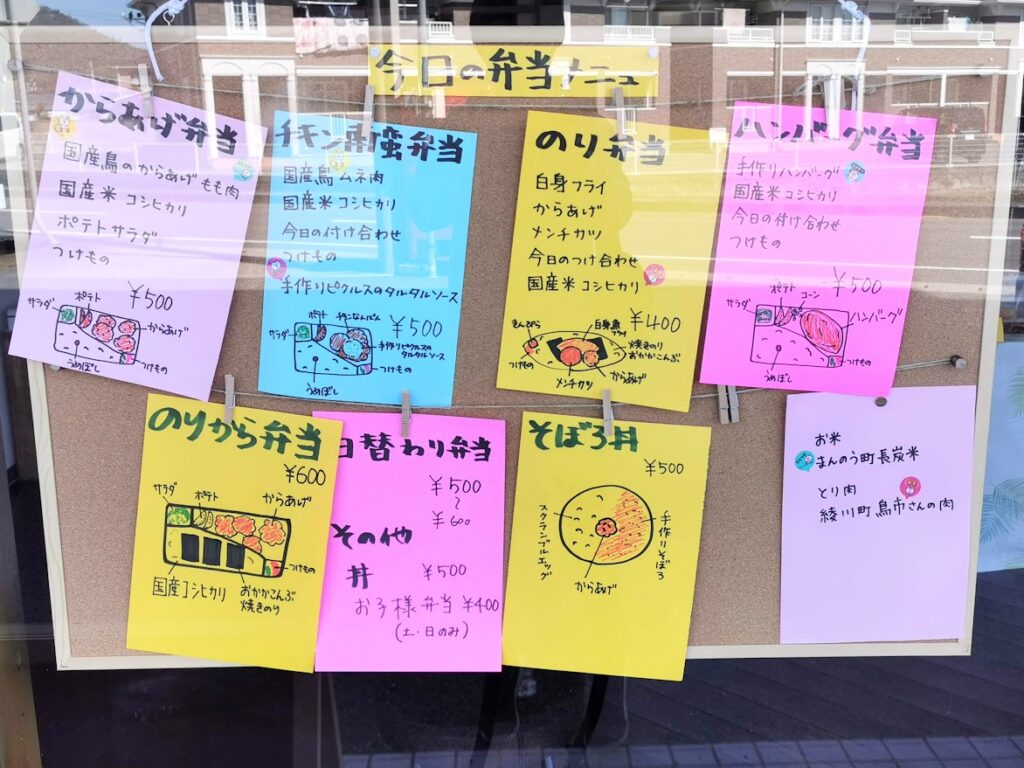 今日の弁当メニュー
からあげ弁当
国産鳥のからあげもも肉
国産米コシヒカリ
ポテトサラダ
つけもの
¥500
サラダ
ポテト
からあげ
うめぼし
つけもの
チキン南蛮弁当
国産鳥ムネ肉
国産米コシヒカリ
今日の付け合わせ
つけもの
手作りピクルスのタルタルソース
¥500
サラダ
ポテト
チキンなんばん
手作りピクルスの
タルタルソース
つけもの
うめぼし
のり弁当
白身フライ
からあげ
メンチカツ
今日のつけ合わせ
国産米コシヒカリ
¥400
きんぴら
白身魚
フライ
焼きのり
おかかこんぶ
つけもの
メンチカツ
からあげ
ハンバーグ弁当
手作りハンバーグ
国産米コシヒカリ
今日の付け合わせ
つけもの
¥500
サラダ
ポテト
コーン
ハンバーグ
つけもの
うめぼし
のりから弁当
¥600
サラダ
ポテト
からあげ
つけもの
国産コシヒカリ
おかかこんぶ
焼きのり
日替わり弁当
¥500
〜
¥600
その他
丼 ¥500
お子様弁当 ¥400
(土・日のみ)
そぼろ丼
¥500
スクランブルエッグ
手作りそぼろ
からあげ
お米
まんのう町長炭米
とり肉
綾川町鳥市さんの肉